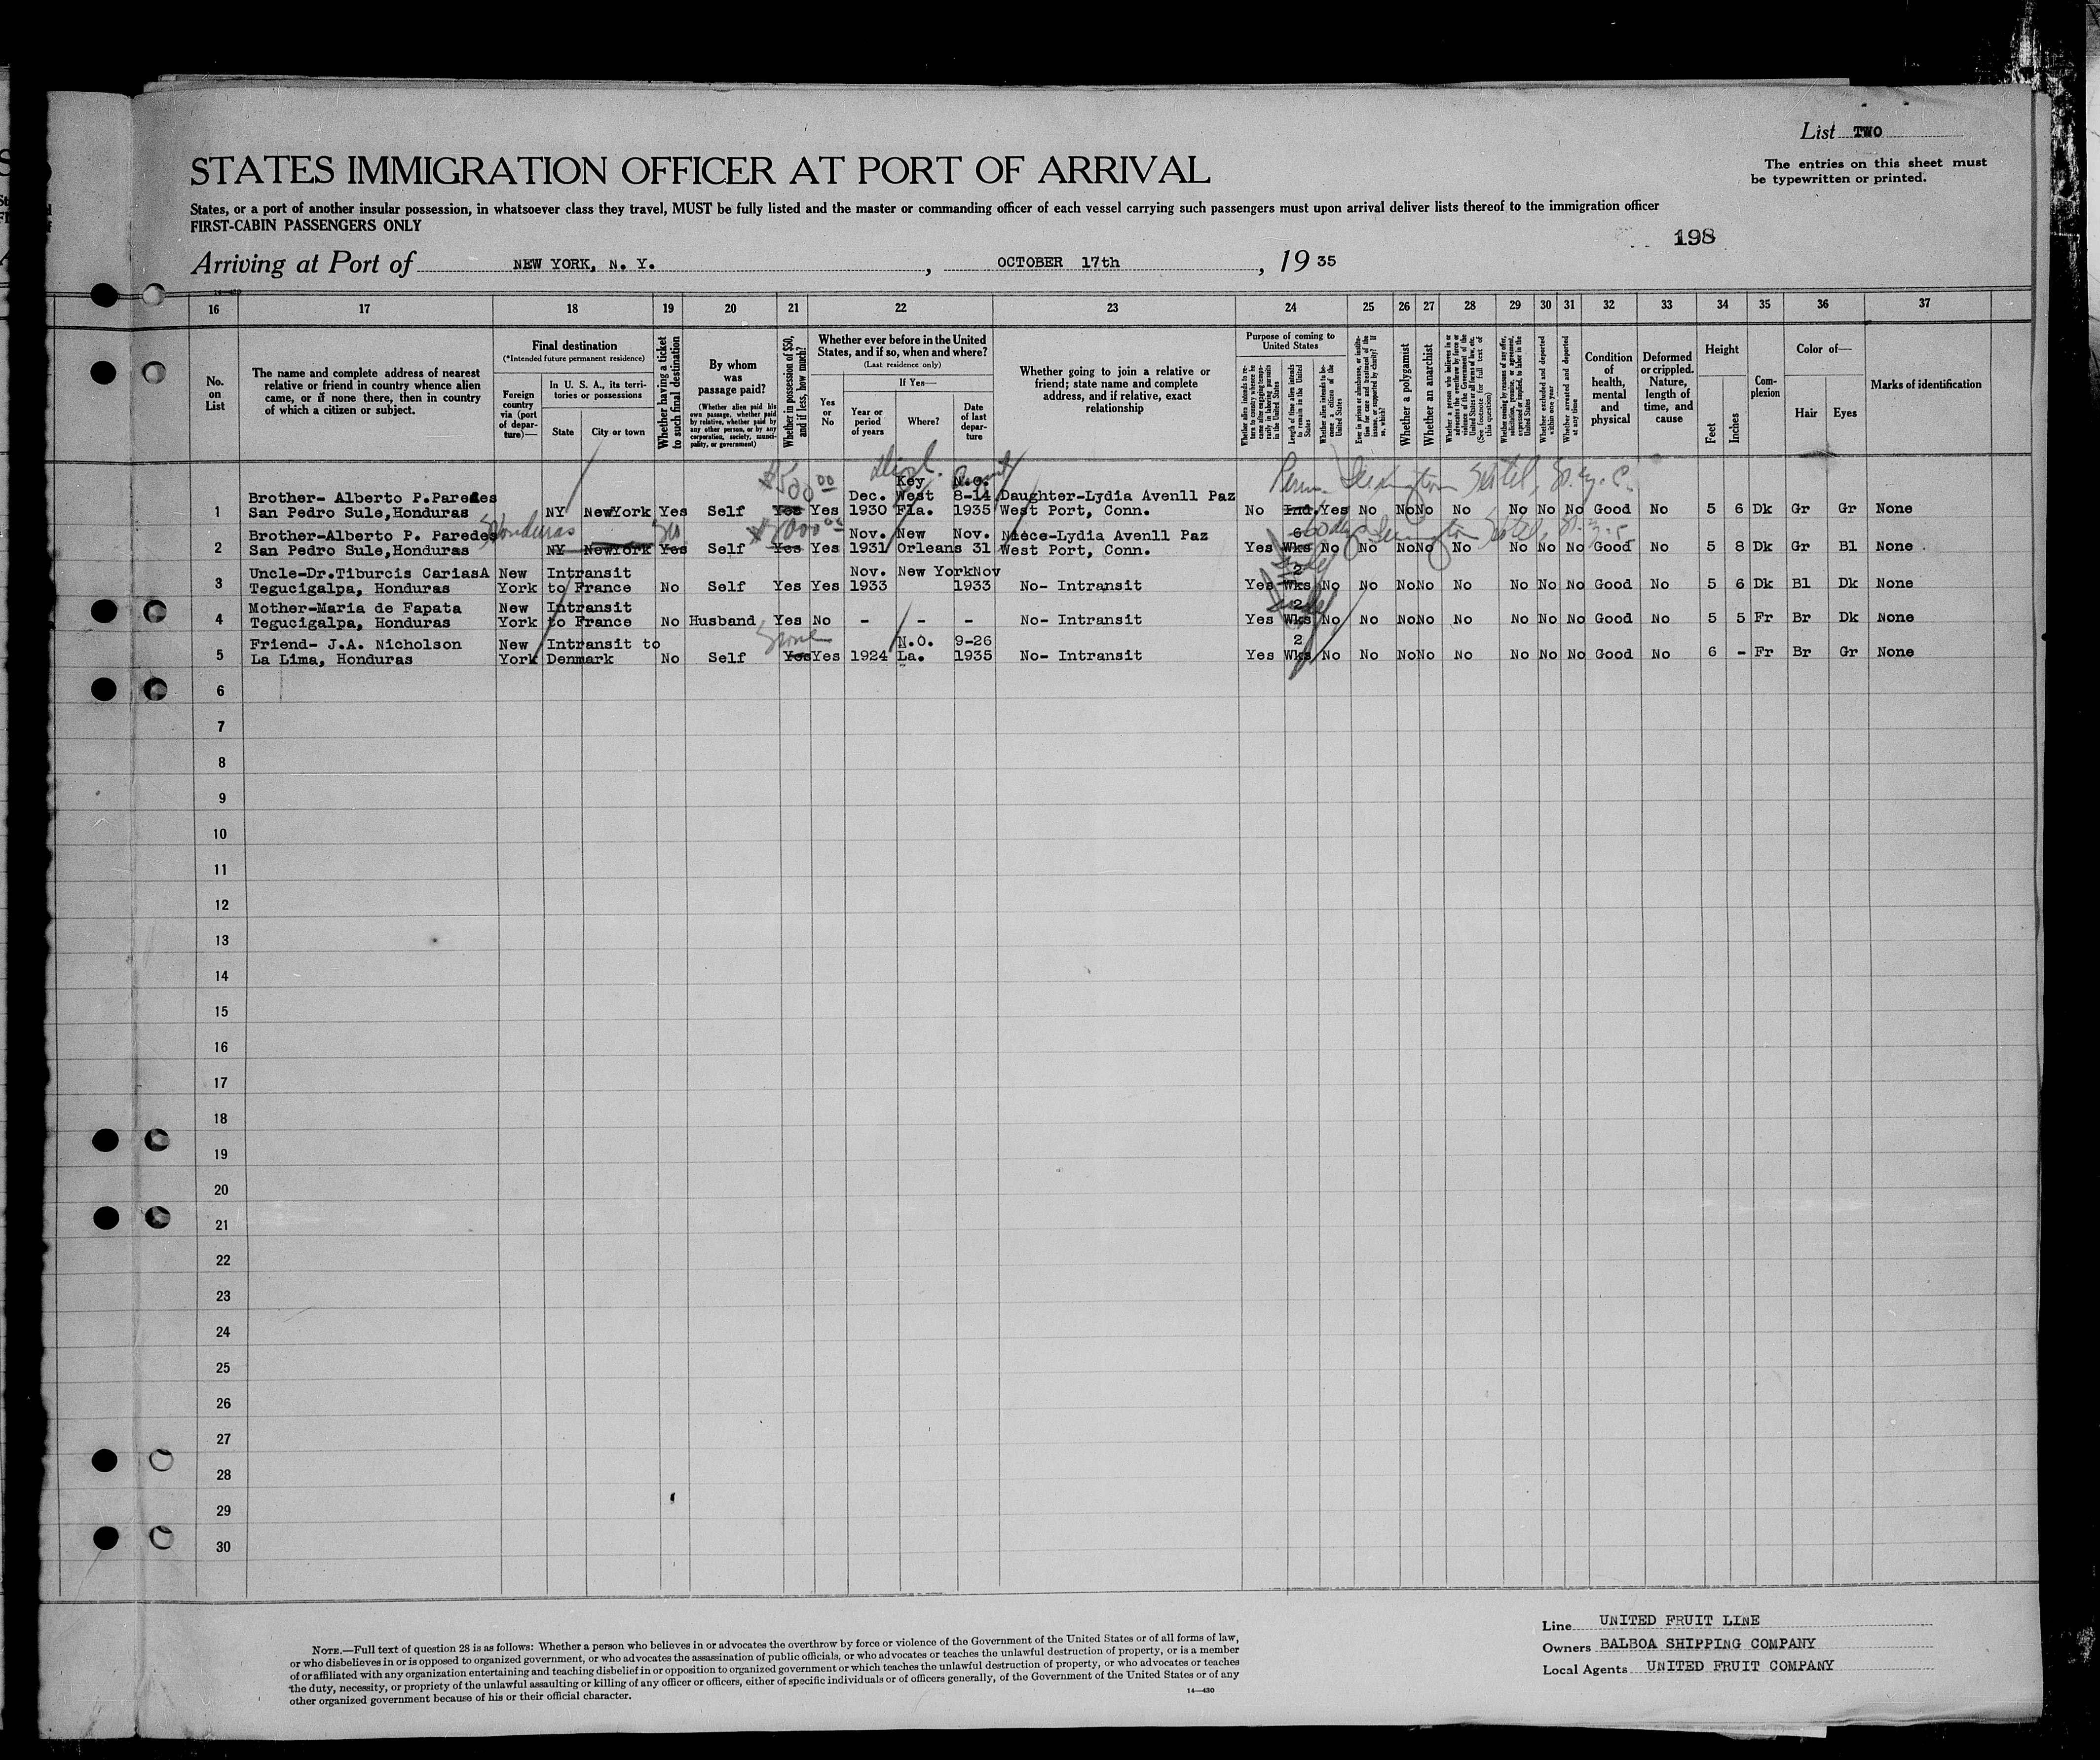 List TWO
STATES IMMIGRATION OFFICER AT PORT OF ARRIVAL
The entries on this sheet must
be typewritten or printed.
States, or a port of another insular possession, in whatsoever class they travel, MUST be fully listed and the master or commanding officer of each vessel carrying such passengers must upon arrival deliver lists thereof to the immigration officer
FIRST-CABIN PASSENGERS ONLY
198
Arriving at Port of NEW YORK, N. Y. , OCTOBER 17th , 19 35
16 17 18 19 20 21 22 23 24 25 26 27 28 29 30 31 32 33 34 35 36 37
No. on List
The name and complete address of nearest
relative or friend in country whence alien
came, or if none there, then in country
of which a citizen or subject.
Final destination
(*Intended future permanent residence)
Foreign country via (port of departure)—
In U. S. A., its territories or possessions
State City or town
Whether having a ticket to such final destination
By whom was passage paid?
(Whether alien paid his own passage, whether paid by relative, whether paid by any other person, or by any corporation, society, municipality, or government)
Whether in possession of $50, and if less, how much?
Whether ever before in the United
States, and if so, when and where?
(Last residence only)
Yes or No
If Yes—
Year or period of years
Where?
Date of last departure
Whether going to join a relative or
friend; state name and complete
address, and if relative, exact
relationship
Purpose of coming to United States
Length of time alien intends to remain in the United States
Whether alien intends to become a citizen of the United States
Whether a polygamist
Whether an anarchist
Whether excluded and deported within one year
Whether arrested and deported at any time
Condition of health, mental and physical
Deformed or crippled. Nature, length of time, and cause
Height
Feet Inches
Complexion
Color of—
Hair Eyes
Marks of identification
Key N.O.
Brother- Alberto P.Paredes Dec. West 8-14 Daughter-Lydia Avenll Paz
1 San Pedro Sule,Honduras NY NewYork Yes Self Yes Yes 1930 Fla. 1935 West Port, Conn. No Ind. Yes No No No No No No No Good No 5 6 Dk Gr Gr None
$500 00
Perm. Lexington Hotel, N.Y.C.
Brother-Alberto P. Paredes Nov. New Nov. Niece-Lydia Avenll Paz 6
2 San Pedro Sule,Honduras NY NewYork Yes Self Yes Yes 1931 Orleans 31 West Port, Conn. Yes Wks No No No No No No No No Good No 5 8 Dk Gr Bl None
Honduras
60 dys Lexington Hotel, N.Y.C.
Uncle-Dr.Tiburcis CariasA New Intransit Nov. New York Nov 2
3 Tegucigalpa, Honduras York to France No Self Yes Yes 1933 1933 No- Intransit Yes Wks No No No No No No No No Good No 5 6 Dk Bl Dk None
Mother-Maria de Fapata New Intransit 2
4 Tegucigalpa, Honduras York to France No Husband Yes No - - - No- Intransit Yes Wks No No No No No No No No Good No 5 5 Fr Br Dk None
Friend- J.A. Nicholson New Intransit to N.O. 9-26 2
5 La Lima, Honduras York Denmark No Self Yes Yes 1924 La. 1935 No- Intransit Yes Wks No No No No No No No No Good No 6 - Fr Br Gr None
6
7
8
9
10
11
12
13
14
15
16
17
18
19
20
21
22
23
24
25
26
27
28
29
30
NOTE.—Full text of question 28 is as follows: Whether a person who believes in or advocates the overthrow by force or violence of the Government of the United States or of all forms of law,
or who disbelieves in or is opposed to organized government, or who advocates the assassination of public officials, or who advocates or teaches the unlawful destruction of property, or is a member
of or affiliated with any organization entertaining and teaching disbelief in or opposition to organized government or which teaches the unlawful destruction of property, or who advocates or teaches
the duty, necessity, or propriety of the unlawful assaulting or killing of any officer or officers, either of specific individuals or of officers generally, of the Government of the United States or of any
other organized government because of his or their official character.
14—430
Line UNITED FRUIT LINE
Owners BALBOA SHIPPING COMPANY
Local Agents UNITED FRUIT COMPANY